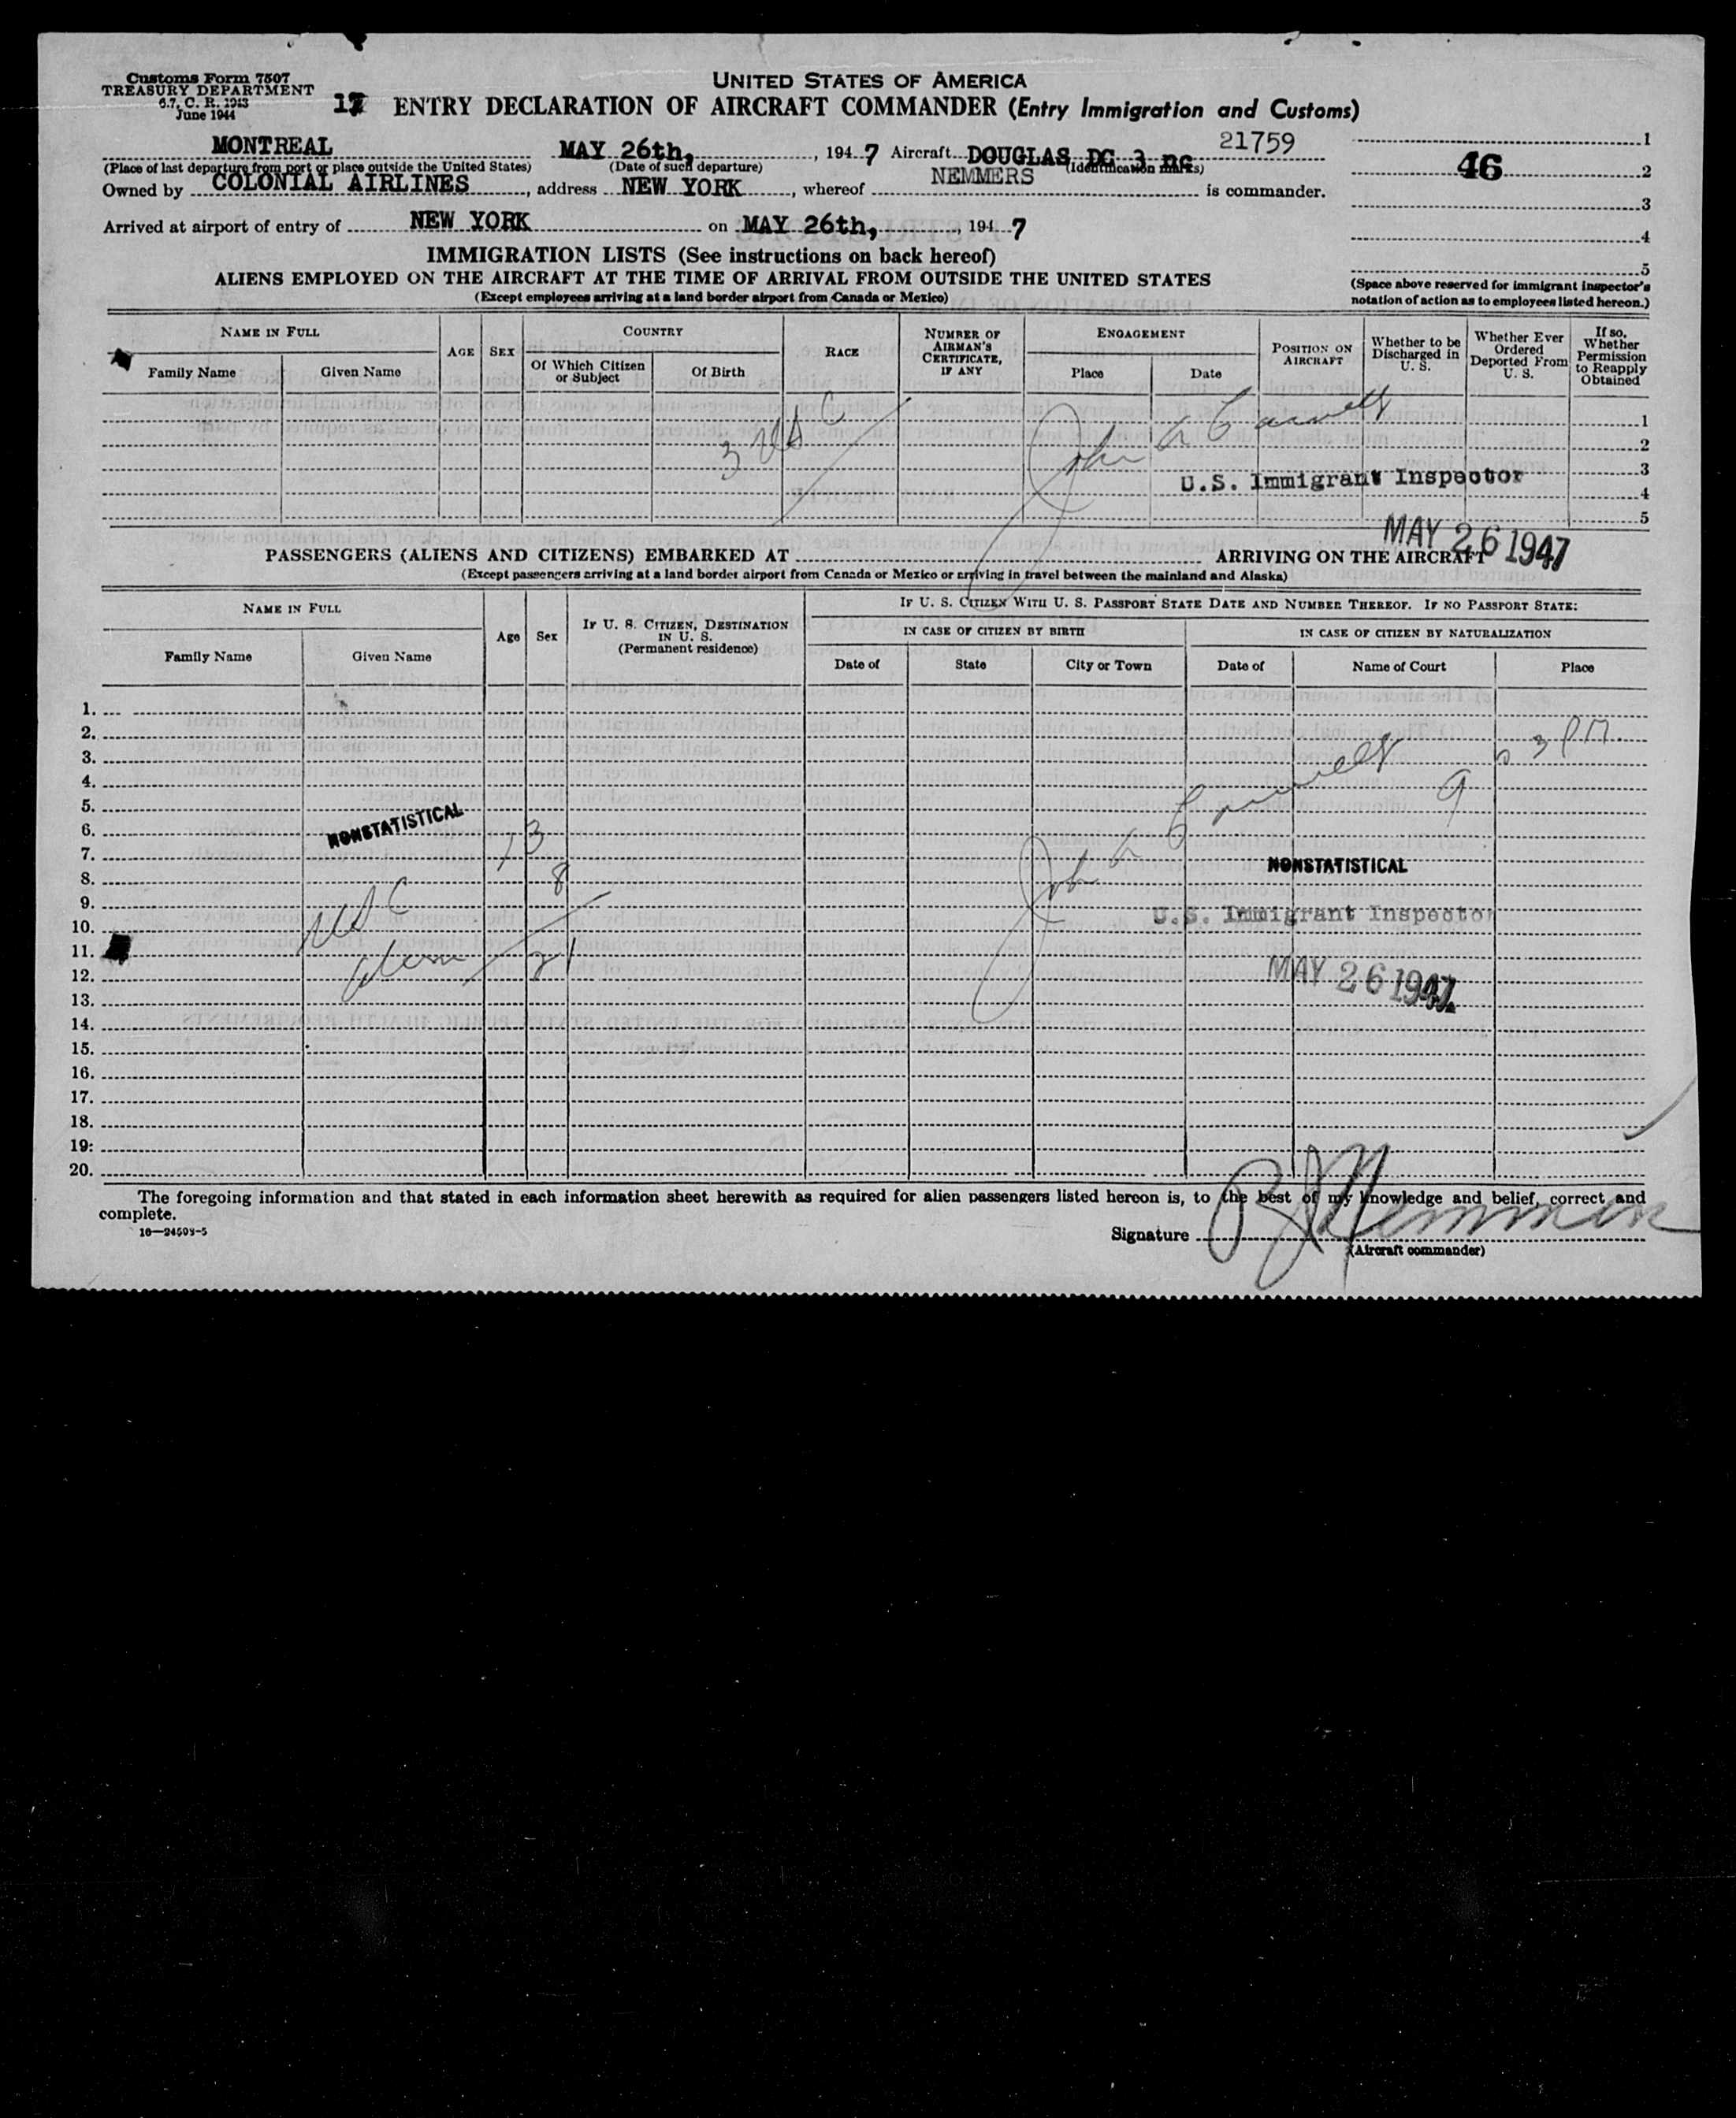 Customs Form 7507
TREASURY DEPARTMENT
6.7, C. R. 1943
June 1944
UNITED STATES OF AMERICA
17 ENTRY DECLARATION OF AIRCRAFT COMMANDER (Entry Immigration and Customs)
MONTREAL MAY 26th, , 1947 Aircraft DOUGLAS DC 3 nc 21759
(Place of last departure from port or place outside the United States) (Date of such departure) (Identification marks)
Owned by COLONIAL AIRLINES , address NEW YORK , whereof NEMMERS is commander.
Arrived at airport of entry of NEW YORK on MAY 26th, , 1947
1
46
2
3
4
5
(Space above reserved for immigrant inspector's notation of action as to employees listed hereon.)
IMMIGRATION LISTS (See instructions on back hereof)
ALIENS EMPLOYED ON THE AIRCRAFT AT THE TIME OF ARRIVAL FROM OUTSIDE THE UNITED STATES
(Except employees arriving at a land border airport from Canada or Mexico)
NAME IN FULL
Family Name Given Name
AGE
SEX
COUNTRY
Of Which Citizen or Subject Of Birth
RACE
NUMBER OF AIRMAN'S CERTIFICATE, IF ANY
ENGAGEMENT
Place Date
POSITION ON AIRCRAFT
Whether to be Discharged in U. S.
Whether Ever Ordered Deported From U. S.
If so, Whether Permission to Reapply Obtained
1
2
3
4
5
3 USC
U.S. Immigrant Inspector
MAY 26 1947
PASSENGERS (ALIENS AND CITIZENS) EMBARKED AT ARRIVING ON THE AIRCRAFT
(Except passengers arriving at a land border airport from Canada or Mexico or arriving in travel between the mainland and Alaska)
NAME IN FULL
Family Name Given Name
Age
Sex
IF U. S. CITIZEN, DESTINATION IN U. S.
(Permanent residence)
IF U. S. CITIZEN WITH U. S. PASSPORT STATE DATE AND NUMBER THEREOF. IF NO PASSPORT STATE:
IN CASE OF CITIZEN BY BIRTH IN CASE OF CITIZEN BY NATURALIZATION
Date of State City or Town Date of Name of Court Place
1.
2.
3.
4.
5.
6.
7.
8.
9.
10.
11.
12.
13.
14.
15.
16.
17.
18.
19.
20.
NONSTATISTICAL
13
8
USC
alien
21
NONSTATISTICAL
U.S. Immigrant Inspector
MAY 26 1947
The foregoing information and that stated in each information sheet herewith as required for alien passengers listed hereon is, to the best of my knowledge and belief, correct and
complete.
16—24598-5
Signature
(Aircraft commander)